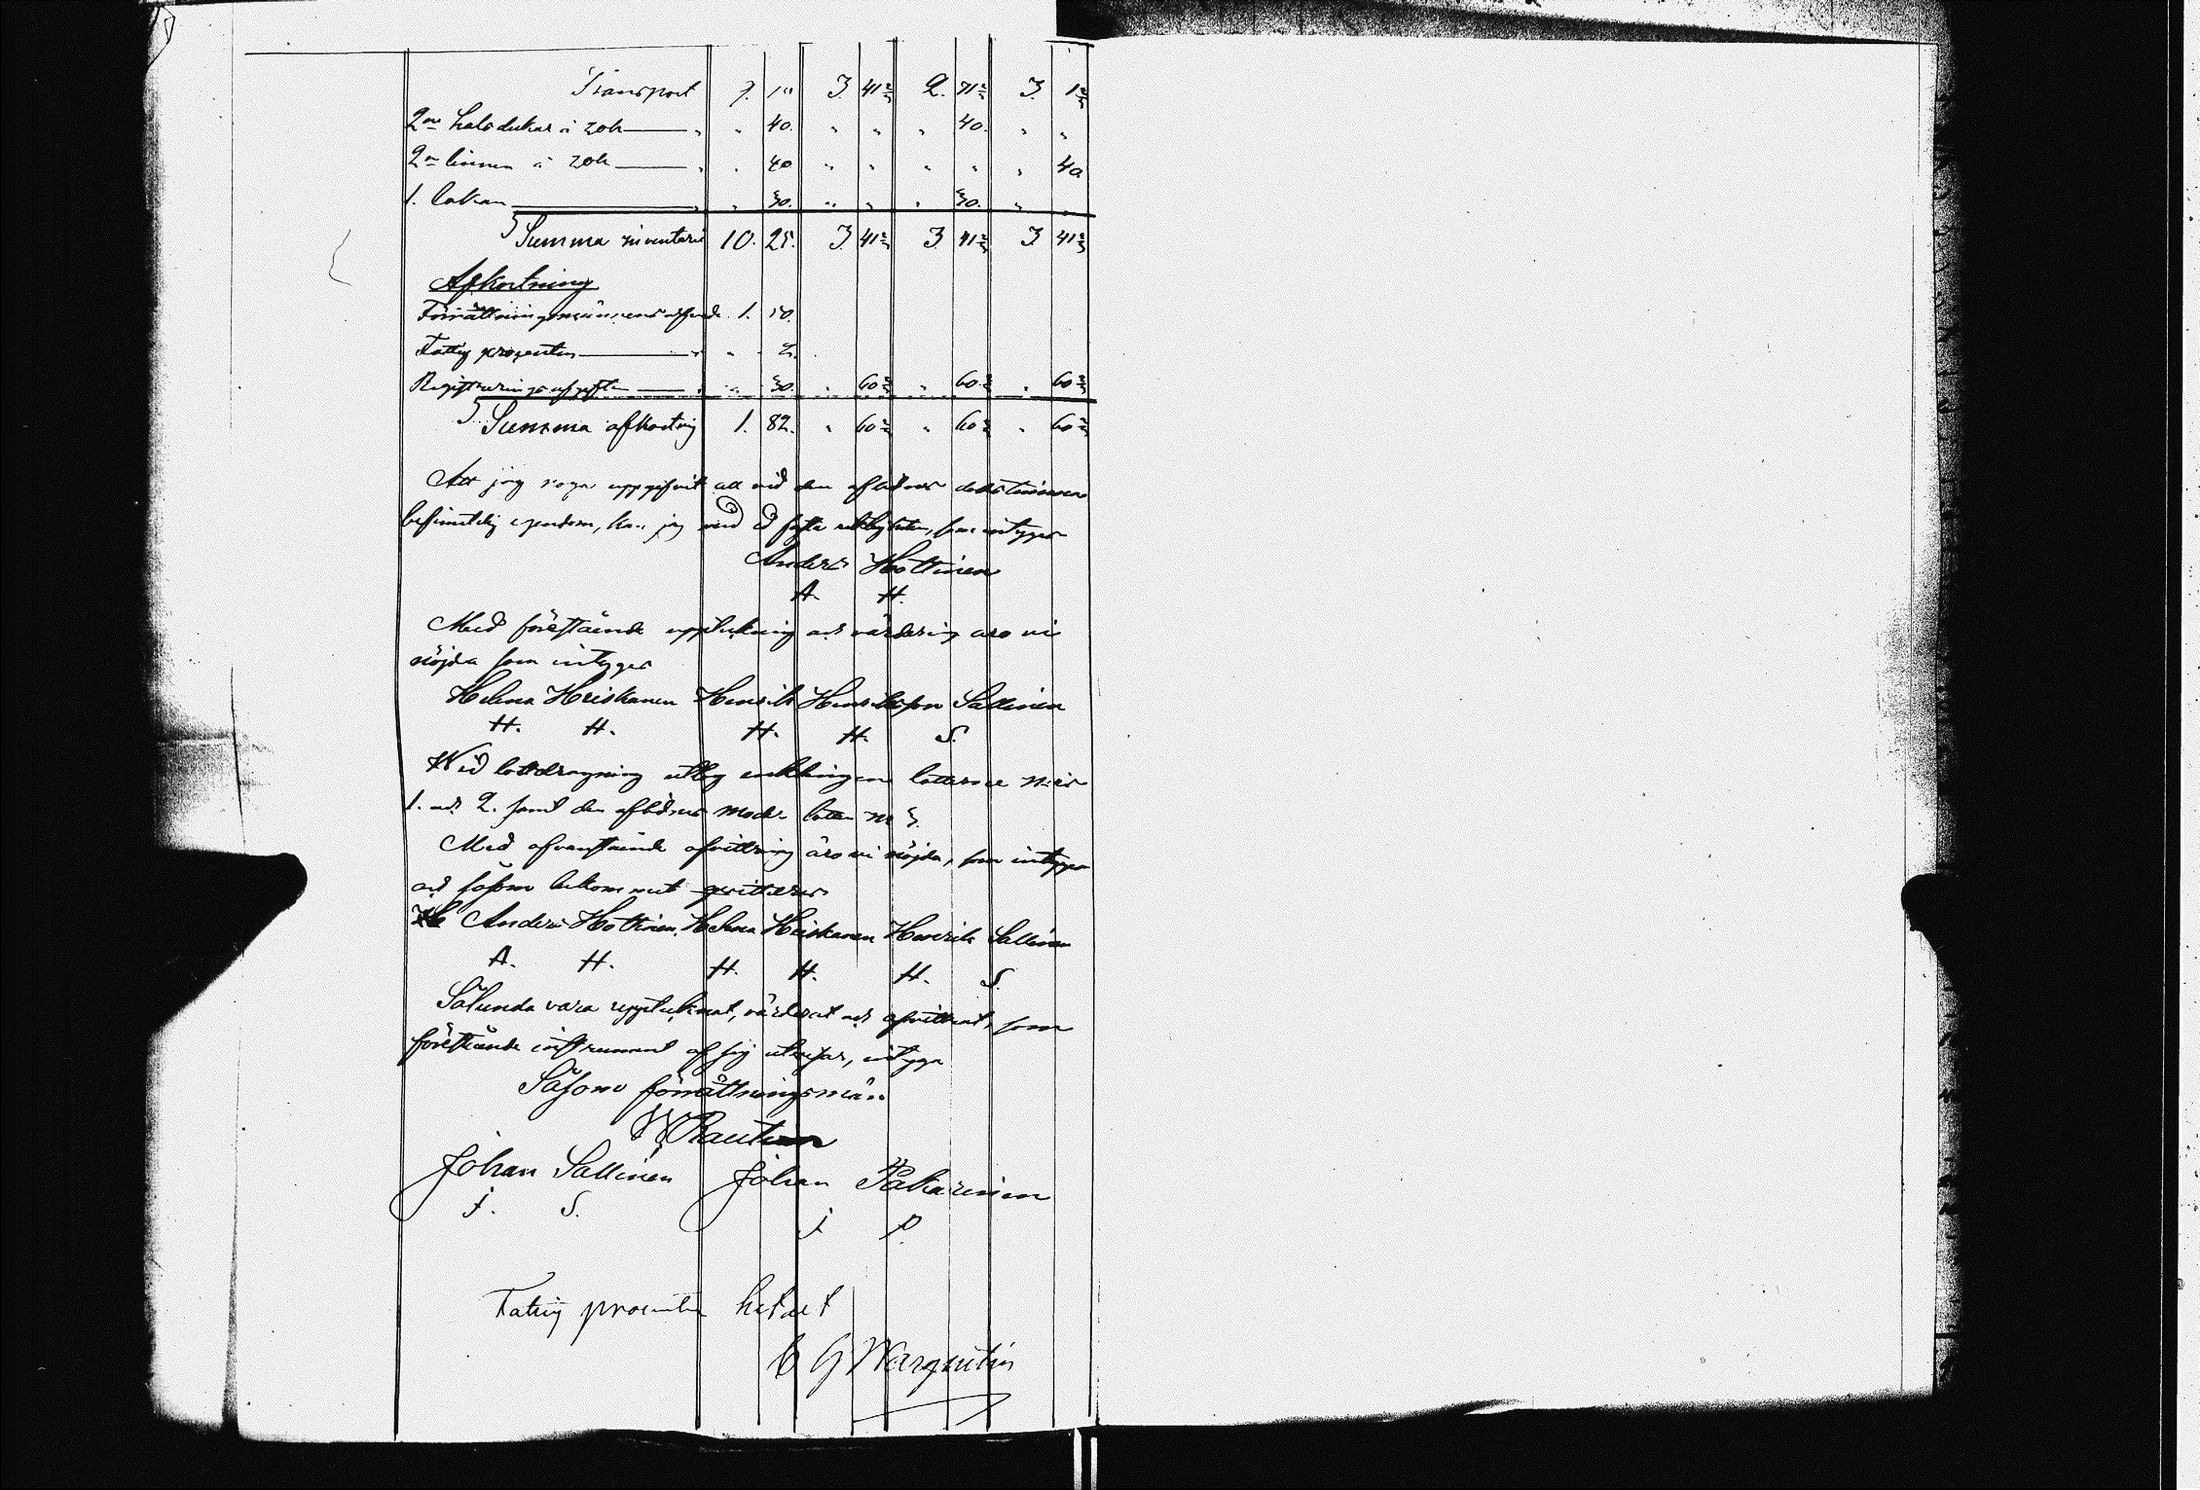 Transport 9. 15 3. 41 2/3 2. 71 2/3 3. 1 2/3
2ne halsdukar à 20k " " 40. " " " 40. " "
2ne linnen à 20k " " 40 " " " " " 40
1. lakan " " 30. " " " 30. " "
Summa inventarii 10. 25. 3. 41 2/3 3. 41 2/3 3. 41 2/3
Afkortning
Förrättningsmännens arfvode 1. 50.
Fattig procenten " " 2.
Registreringsafgiften " " 30. " 60 2/3 " 60 2/3 " 60 2/3
Summa afkortnig 1. 82. " 60 2/3 " 60 2/3 " 60 2/3
Att jag noga uppgifvit all vid den aflidnes dödstimma
befintelig egendom, kan jag med ed fästa, som intygar
Anders Hottinen
A. H.
Med förestående uppteckning och värdering äro vi
nöjda som intygar
Helena Heiskanen Henrik Henriksson Sallinen
H. H. H. H. S.
Wid lottdragning utlog enklingen lotterne N:ris
1. och 2. samt den aflidnes moder lotten N: 3.
Med ofvanstående afvittring äro vi nöjda, som intygar
och såsom bekommit qvitteras
Anders Hottinen, Helena Heiskanen Henrik Sallinen
A. H. H. H. H. S.
Sålunda vara upptecknat, värderat och afvittrat, som
förestående instrument af sig utvisar, intyga
Såsom förrättningsmän
W Rautian
Johan Sallinen Johan Pakarinen
J. S. J P.
Fattig procenten betalt
C G Wargentin